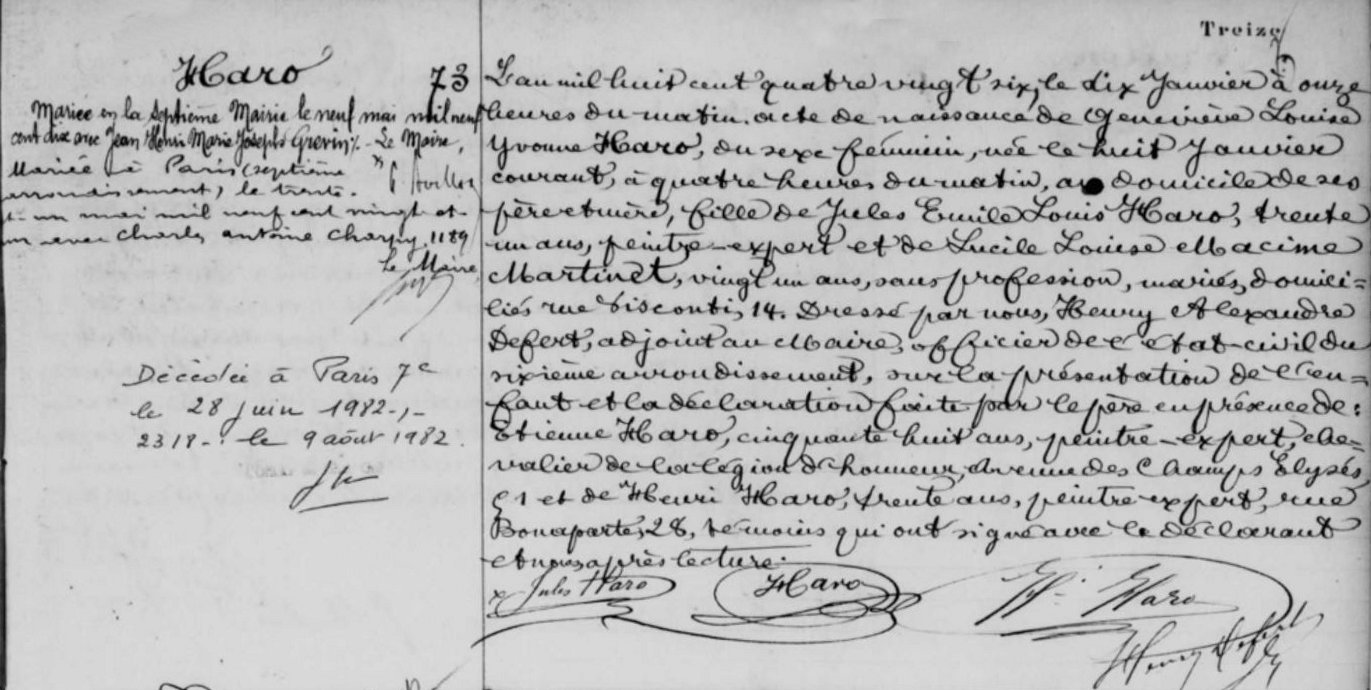 Treize
Haro
73
Mariée en la septième Mairie le neuf mai mil neuf
cent dix avec Jean Henri Marie Joseph Grévin ./. Le Maire,
Mariée à Paris (septième
arrondissement), le trente
et un mai mil neuf cent vingt et
un avec Charles Antoine 1189
le Maire,
Décédée à Paris 7e
le 28 juin 1982.,-
2318-. le 9 août 1982
L'an mil huit cent quatre vingt six, le dix Janvier à onze
heures du matin. acte de naissance de Geneviève Louise
Yvonne Haro, du sexe féminin, née le huit Janvier
courant, à quatre heures du matin, au domicile de ses
père et mère, fille de Jules Emile Louis Haro, trente
un ans, peintre-expert et de Lucile Louise Macime
Martinet, vingt un ans, sans profession, mariés, domici=
liés rue Visconti, 14. Dressé par nous, Henry Alexandre
Defert, adjoint au Maire, officier de l'état-civil du
sixième arrondissement, sur la présentation de l'en=
fant et la déclaration faite par le père en présence de:
Etienne Haro, cinquante huit ans, peintre-expert, che=
valier de la légion d'honneur, avenue des Champs Elysés
51 et de Henri Haro, trente ans, peintre-expert, rue
Bonaparte, 28, témoins qui ont signé avec le déclarant
et nous après lecture.
x Jules Haro Haro Hri Haro
Henry Defert